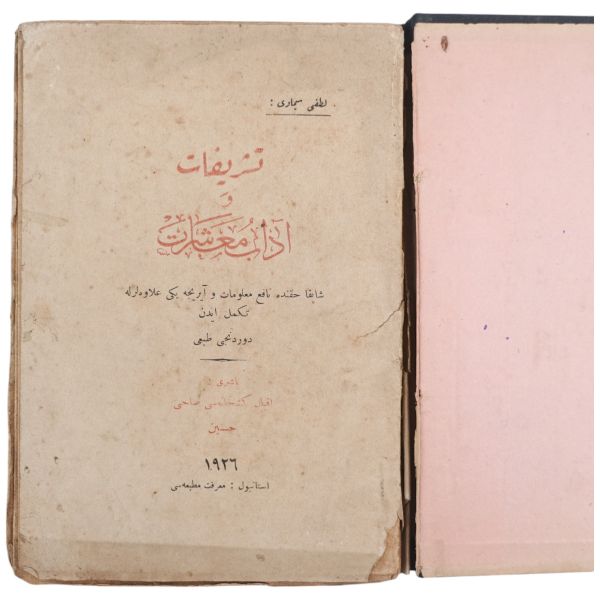 لطفی سیماوی :
تشریفات
و
آداب معاشرت
شاپقا حقنده نافع معلومات و آیریجه یکی علاوه‌لرله
تکمل ایدن
دوردنجی طبعی
ناشری :
اقبال کتبخانه‌سی صاحبی
حسین
۱۹۲٦
استانبول : معرفت مطبعه‌سی